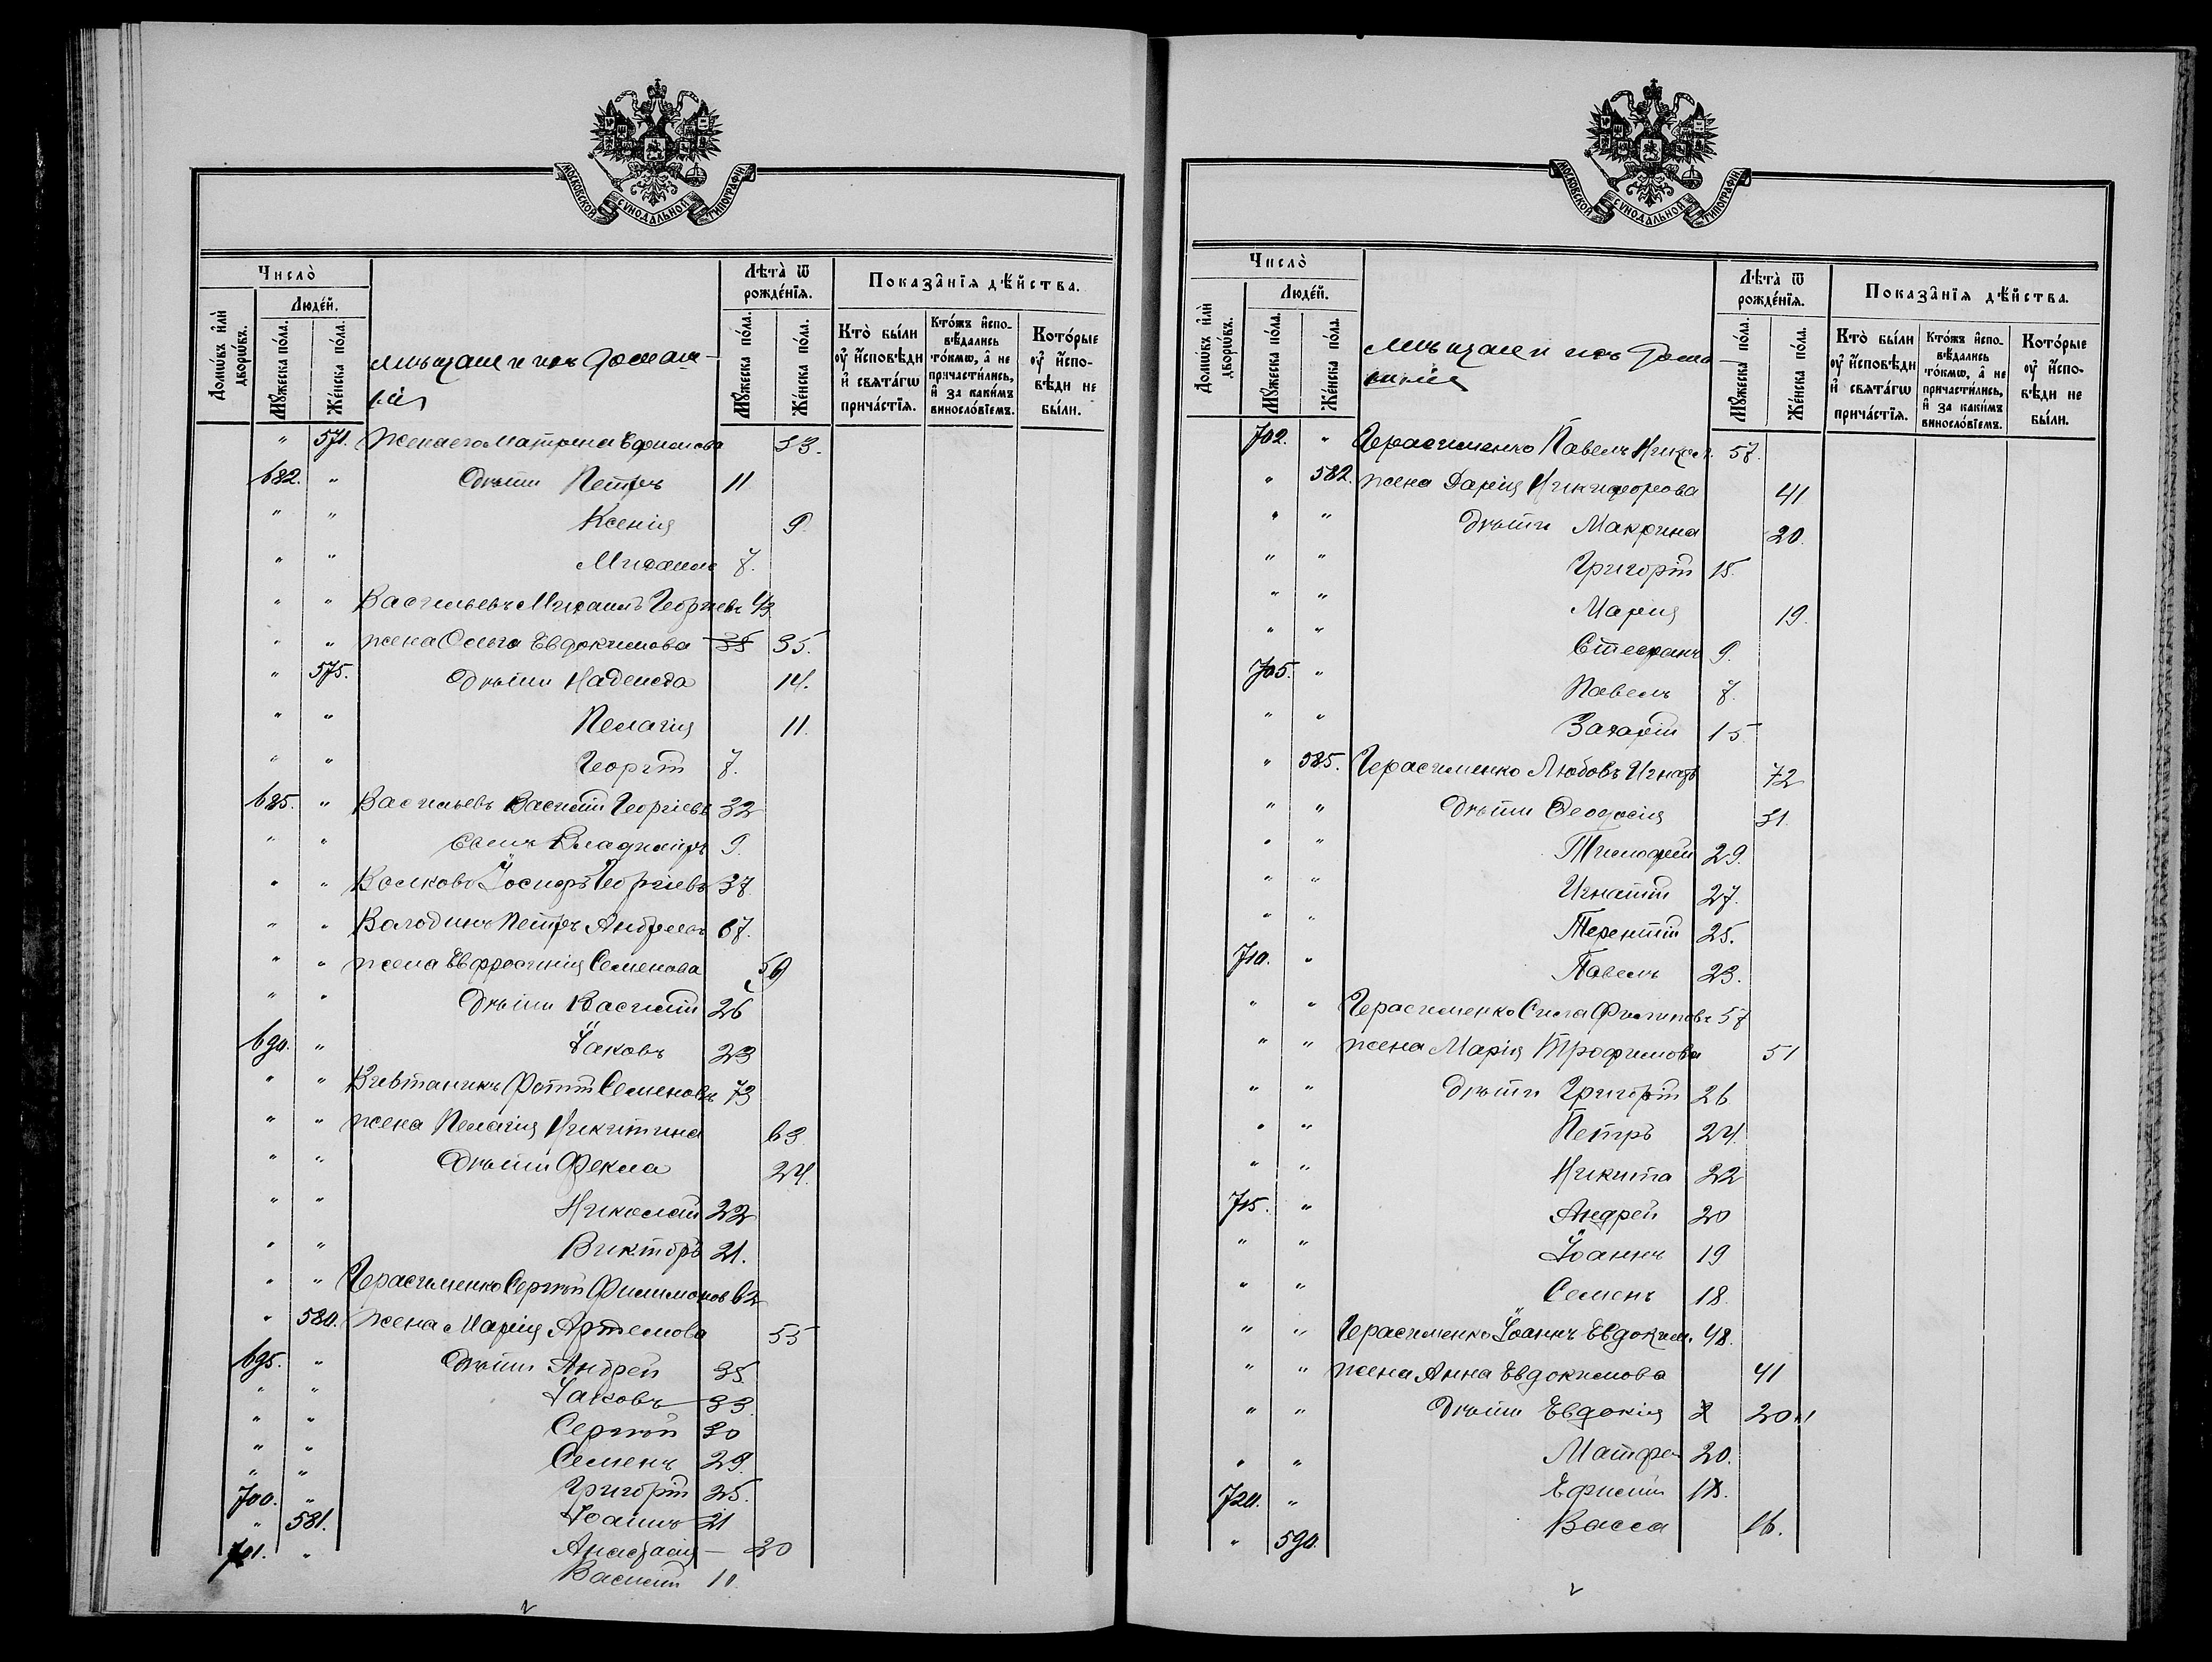 МОСКОВСКОЙ СѴНОДАЛЬНОЙ ТИПОГРАФІИ
Число̀
Люде́й.
Домѡ́въ и҆лѝ дворѡ́въ.
Мꙋ́жеска по́ла.
Же́нска по́ла.
мѣщане и ихъ домаш-
нія
Лѣта̀ ѿ рожде́нїѧ.
Мꙋ́жеска по́ла.
Же́нска по́ла.
Показа̂нїѧ дѣ́йства.
Кто̀ бы́ли оу҆ и҆сповѣ́ди и҆ свѧта́гѡ прича́стїѧ.
Кто́жъ и҆спо-вѣ́дались то́кмѡ, а҆ не причасти́лись, и҆ за каки́мъ винослоˊвїемъ.
Кото́рые оу҆ и҆спо-вѣ́ди не бы́ли.
" 571. жена его Матрина Ефимова 33.
682. " дѣти Петръ 11
" " Ксенія 9
" " Михаилъ 7.
" " Васильевъ Михаилъ Георгіевъ 43
" " жена Ольга Евдокимова 38 35.
" 575. дѣти Надежда 14.
" " Пелагія 11.
" " Георгій 7.
685. " Васильевъ Василій Георгіевъ 32
" " сынъ Владиміръ 9.
" " Волковъ Іосифъ Георгіевъ 37
" " Володинъ Петръ Андреевъ 67.
" " жена Евфросинія Семенова 59
" " дѣти Василій 26
690. " Іаковъ 23
" " Фотій Семеновъ 73
" " жена Пелагія Никитина 63
" " дѣти Фекла 24.
" " Николай 22
" " Викторъ 21.
" " Герасименко Сергѣй Филимонов 62
" 580. жена Марія Артемова 55
695. " дѣти Андрей 35.
" " Іаковъ 33.
" " Сергѣй 30
" " Семенъ 29.
" " Григорій 25.
700. " Іоаннъ 21
" 581. Анастасія — 20
701. " Василій 11.
МОСКОВСКОЙ СѴНОДАЛЬНОЙ ТИПОГРАФІИ
Число̀
Люде́й.
Домѡ́въ и҆лѝ дворѡ́въ.
Мꙋ́жеска по́ла.
Же́нска по́ла.
мѣщане и ихъ дома
шнія
Лѣта̀ ѿ рожде́нїѧ.
Мꙋ́жеска по́ла.
Же́нска по́ла.
Показа̂нїѧ дѣ́йства.
Кто̀ бы́ли оу҆ и҆сповѣ́ди и҆ свѧта́гѡ прича́стїѧ.
Кто́жъ и҆спо-вѣ́дались то́кмѡ, а҆ не причасти́лись, и҆ за каки́мъ винослоˊвїемъ.
Кото́рые оу҆ и҆спо-вѣ́ди не бы́ли.
702. " Герасименко Павелъ 57.
" 582. жена Дарія Никифорова 41
" " дѣти Макрина 20.
" " Григорій 15.
" " Марія 19.
" " Стефанъ 9.
705. " Павелъ 7.
" " Захарій 15
" 585. Герасименко Любовь Игнат 72
" " дѣти Феодосія 31.
" " Тимофей 29.
" " Игнатій 27.
" " Терентій 25.
710. " Павелъ 23.
" " Герасименко Сила Филиповъ 57
" " жена Марія Трофимова 51
" " дѣти Григорій 26
" " Петръ 24.
" " Никита 22
715. " Андрей 20
" " Іоаннъ 19
" " Семенъ 18.
" " Герасименко Іоаннъ Евдоким. 48.
" " жена Анна Евдокимова 41
" " дѣти Евдокія 20
" " Матфе 20.
720. " Ефимій 18.
" 590. Васса 16.